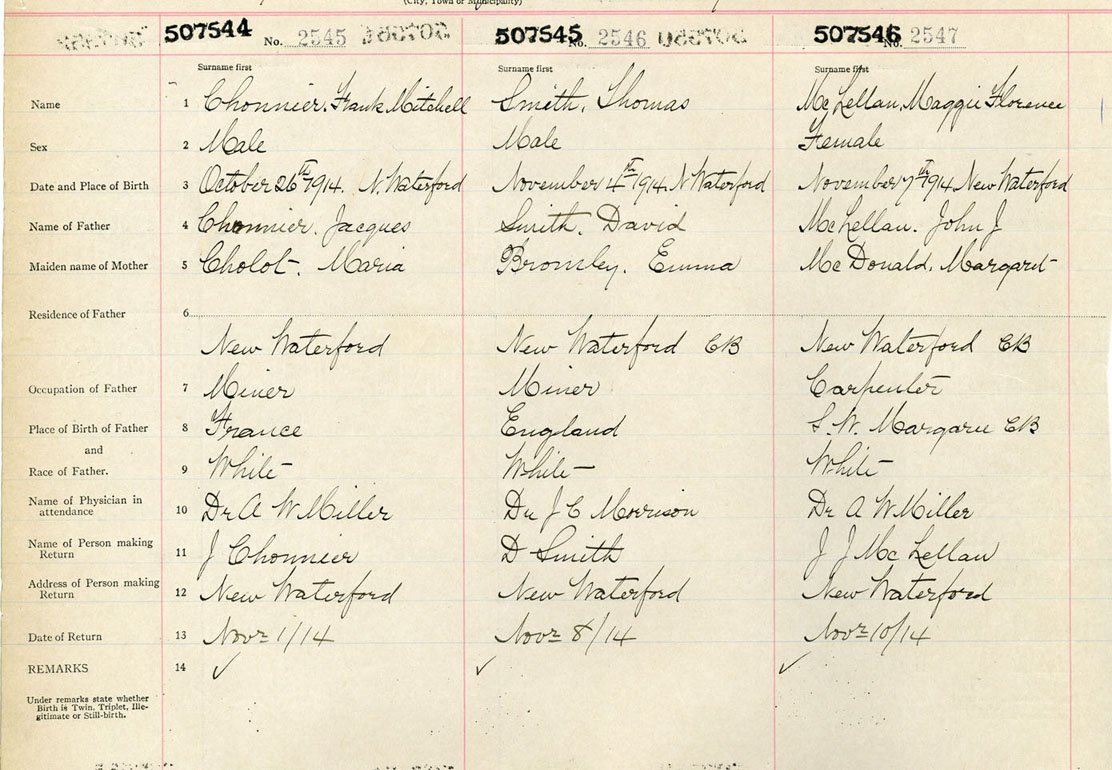 (City, Town or Municipality)
507544 No. 2545 507545 No. 2546 507546 No. 2547
Surname first Surname first Surname first
Name 1 Chonnier. Frank Mitchell Smith, Thomas McLellan, Maggie Florence
Sex 2 Male Male Female
Date and Place of Birth 3 October 26th 1914. N. Waterford November 4th 1914 N Waterford November 7th 1914 New Waterford
Name of Father 4 Chonnier. Jacques Smith, David McLellan. John J
Maiden name of Mother 5 Cholot, Maria Bromley. Emma McDonald, Margaret
Residence of Father 6
New Waterford New Waterford CB New Waterford CB
Occupation of Father 7 Miner Miner Carpenter
Place of Birth of Father 8 France England S. W. Margaree CB
and
Race of Father. 9 White White White
Name of Physician in
attendance 10 Dr A W Miller Dr J C Morrison Dr A W Miller
Name of Person making
Return 11 J Chonnier D Smith J J McLellan
Address of Person making
Return 12 New Waterford New Waterford New Waterford
Date of Return 13 Novr 1/14 Novr 8/14 Novr 10/14
REMARKS 14 ✓ ✓ ✓
Under remarks state whether
Birth is Twin, Triplet, Ille-
gitimate or Still-birth.